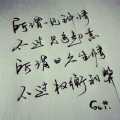 所谓一见钟情
不过见色起意
所谓日久生情
不过权衡利弊